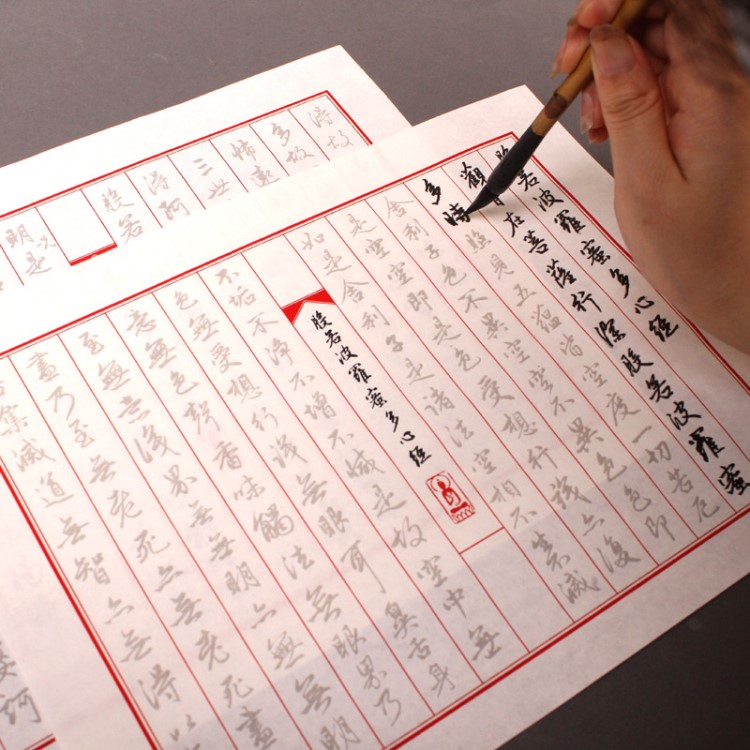 般若波羅蜜多心經
觀自在菩薩行深般若波羅蜜
多時照見五蘊皆空度一切苦厄
舍利子色不異空空不異色色即
是空空即是色受想行識亦復
如是舍利子是諸法空相不滅
般若波羅蜜多心經
不垢不淨不增不減是故空中無
色無受想行識無眼耳鼻舌身
意無色聲香味觸法無眼界乃
至無意識界無無明亦無無明
盡乃至無老死亦無老死盡
集滅道無智亦無得以
得故
多故
三世
得阿
般若
明是